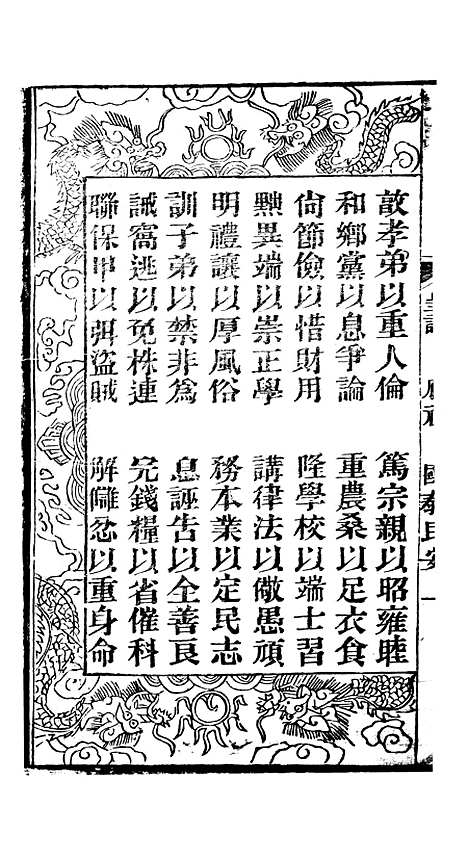 敦孝弟以重人倫　篤宗親以昭雍睦
和鄉黨以息爭論　重農桑以足衣食
尙節儉以惜財用　隆學校以端士習
黜異端以崇正學　講律法以儆愚頑
明禮讓以厚風俗　務本業以定民志
訓子弟以禁非爲　息誣吿以全善良
誡窩逃以免株連　完錢糧以省催科
聯保甲以弭盜賊　解讎忿以重身命
國泰民安
一